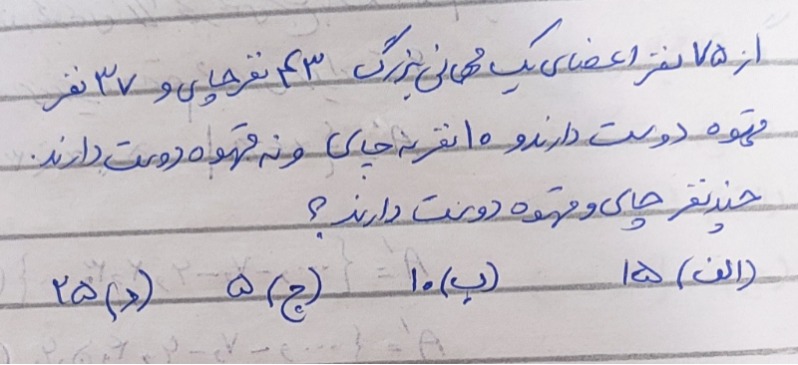 از ۷۵ نفر اعضای یک مهمانی بزرگ ۴۳ نفر چای و ۳۷ نفر
قهوه دوست دارند و ۱۰ نفر نه چای و نه قهوه دوست دارند.
چند نفر چای و قهوه دوست دارند؟
الف) ۱۵ ب) ۱۰ ج) ۵ د) ۲۵